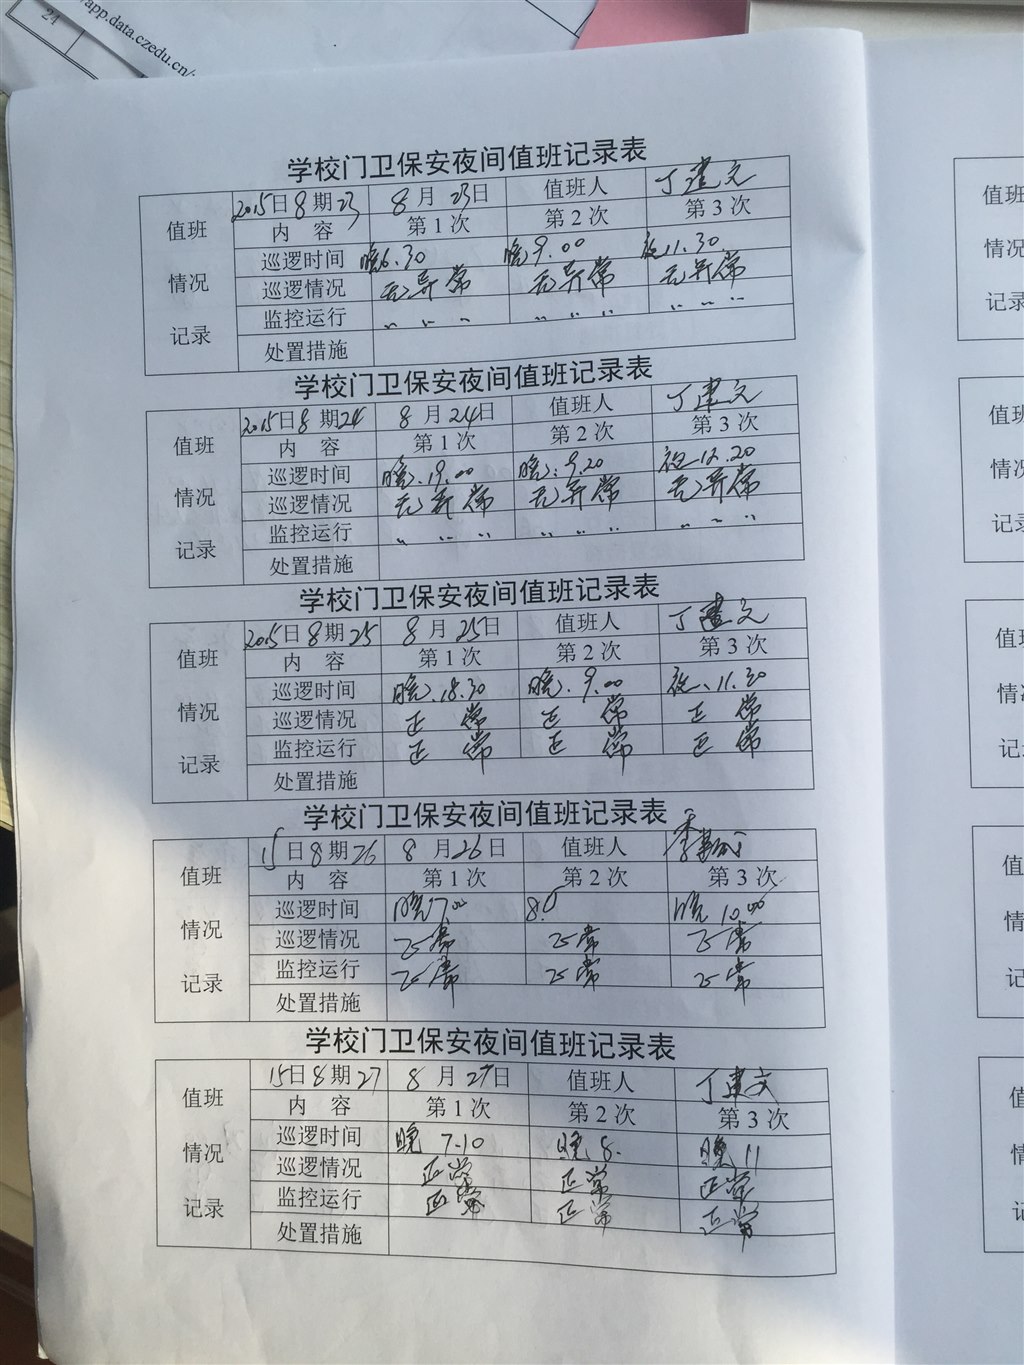 24
app.data.czedu.cn/
学校门卫保安夜间值班记录表
值班 情况 记录
2015日8期23 8月23日 值班人 丁建文
内 容 第1次 第2次 第3次
巡逻时间 晚6.30 晚9.00 夜11.30
巡逻情况 无异常 无异常 无异常
监控运行 〃 〃 〃 〃 〃 〃 〃 〃 〃
处置措施
学校门卫保安夜间值班记录表
值班 情况 记录
2015日8期24 8月24日 值班人 丁建文
内 容 第1次 第2次 第3次
巡逻时间 晚.19.00 晚:9.20 夜.12.20
巡逻情况 无异常 无异常 无异常
监控运行 〃 〃 〃 〃 〃 〃 〃 〃 〃
处置措施
学校门卫保安夜间值班记录表
值班 情况 记录
2015日8期25 8月25日 值班人 丁建文
内 容 第1次 第2次 第3次
巡逻时间 晚.18.30 晚.9.00 夜.11.30
巡逻情况 正常 正常 正常
监控运行 正常 正常 正常
处置措施
学校门卫保安夜间值班记录表
值班 情况 记录
15日8期26 8月26日 值班人
内 容 第1次 第2次 第3次
巡逻时间 晚7.00 晚10.00
巡逻情况 正常 正常 正常
监控运行 正常 正常 正常
处置措施
学校门卫保安夜间值班记录表
值班 情况 记录
15日8期27 8月27日 值班人 丁建文
内 容 第1次 第2次 第3次
巡逻时间 晚 7.10 晚 8. 晚 11
巡逻情况 正常 正常 正常
监控运行 正常 正常 正常
处置措施
值班
情况